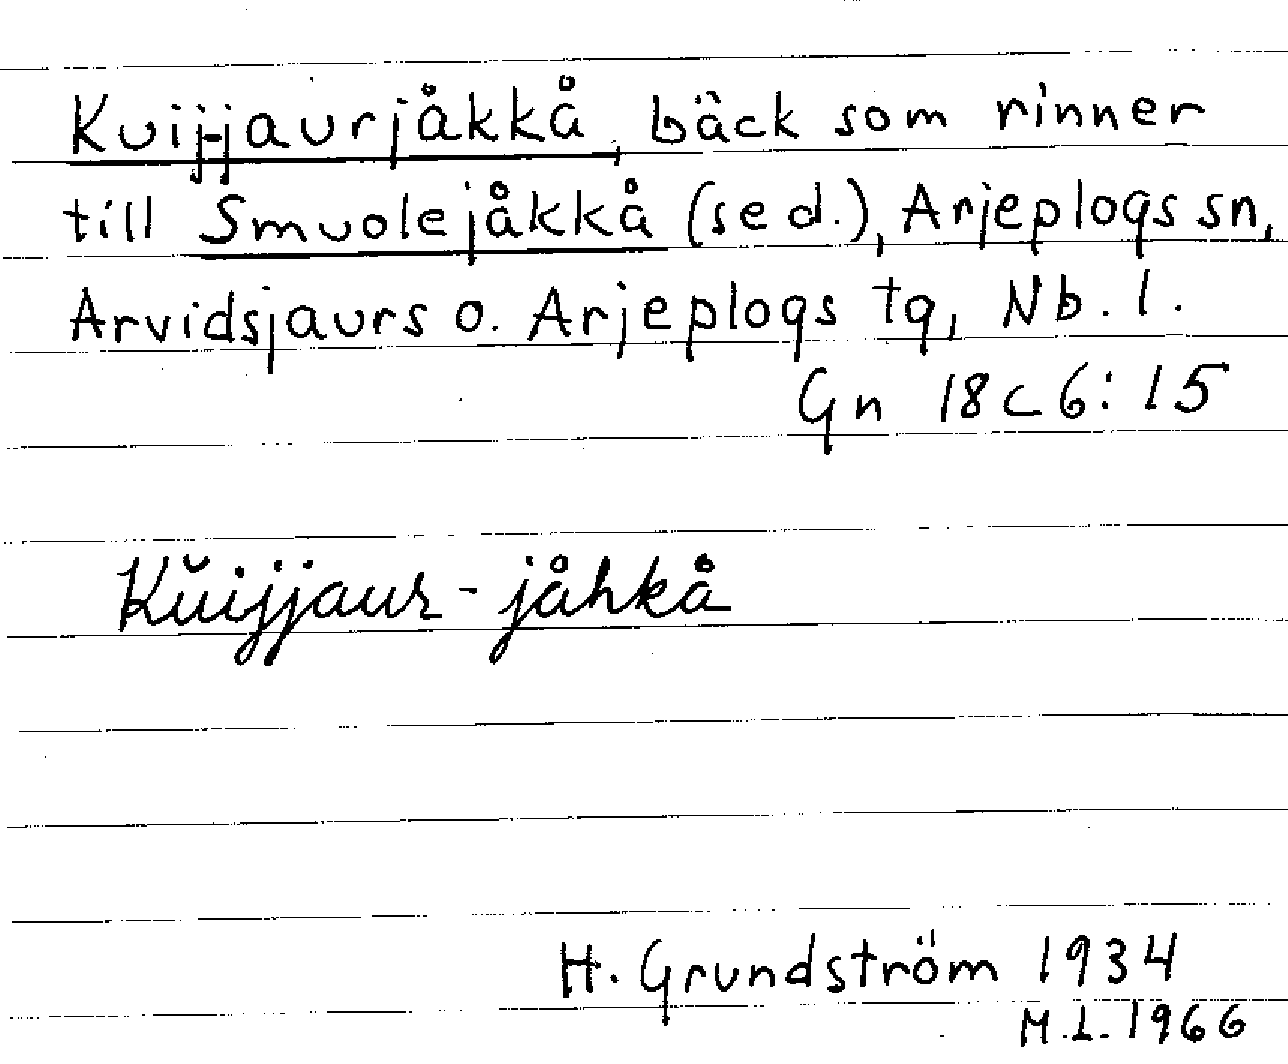 Kuijjaurjåkkå, bäck som rinner
till Smuolejåkkå (sed.), Arjeplogs sn,
Arvidsjaurs o. Arjeplogs tg, Nb. l.
Gn 18c6:15
Kŭijjaur-jåhkå
H. Grundström 1934
M.L. 1966